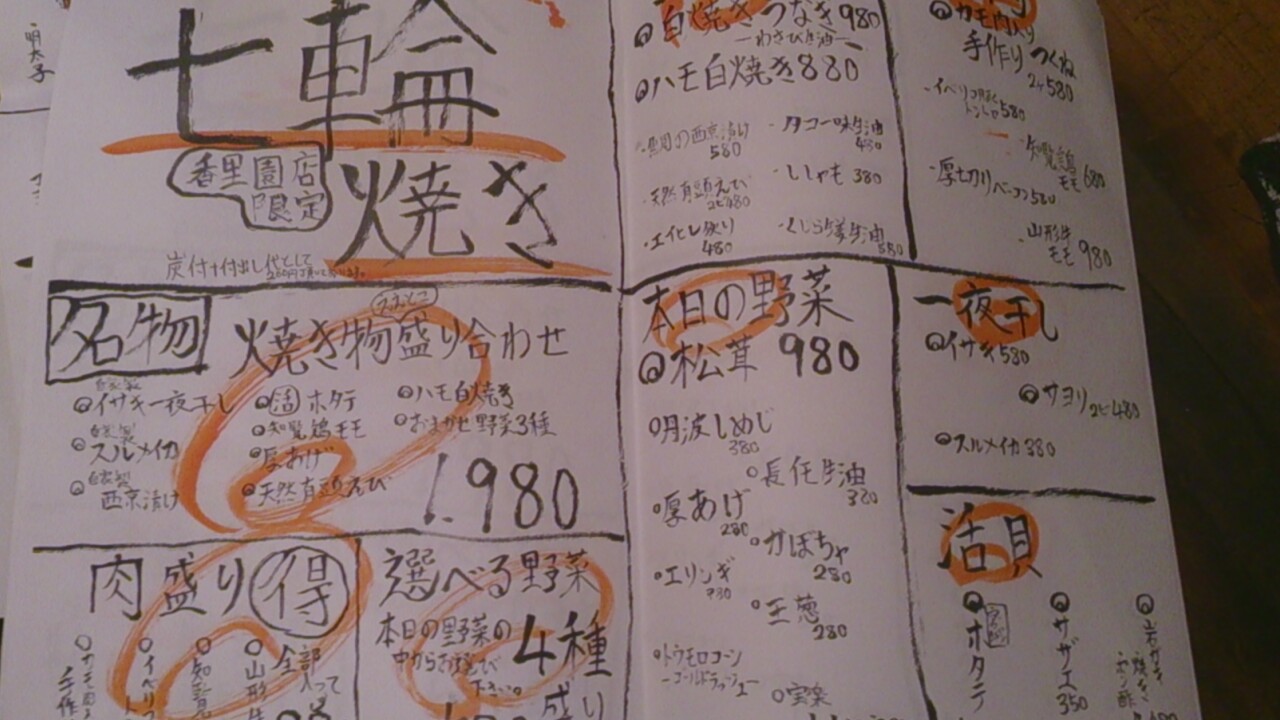 明太子
七輪
焼き
香里園店
限定
炭付+付出し代として
名物
焼き物盛り合わせ
自家製
イサキ一夜干し
自家製
スルメイカ
自家製
西京漬け
活 ホタテ
知覧鶏モモ
厚あげ
天然有頭えび
ハモ白焼き
おまかせ野菜3種
1.980
肉盛り 得
全部
入って
選べる野菜
本日の野菜の
中からお選び
下さい。
4種
盛り
白焼きうなぎ 980
ーわさび生油ー
ハモ白焼き 880
の西京漬け
580
天然有頭えび
2ヒ 480
エイヒレ炙り
480
タコ一味生油
480
ししゃも 380
くじら生油
580
本日の野菜
松茸 980
丹波しめじ
380
長任生油
320
厚あげ
280
かぼちゃ
280
エリンギ
玉葱
280
トウモロコシ
ーゴールドラッシュー
カモ肉入り
手作りつくね
2ケ 580
イベリコ豚
トントロ 580
知覧鶏
モモ 680
厚切りベーコン 580
山形牛
モモ 980
一夜干し
イサキ 580
サヨリ 2ヒ 480
スルメイカ 380
活貝
ホタテ
サザエ 350